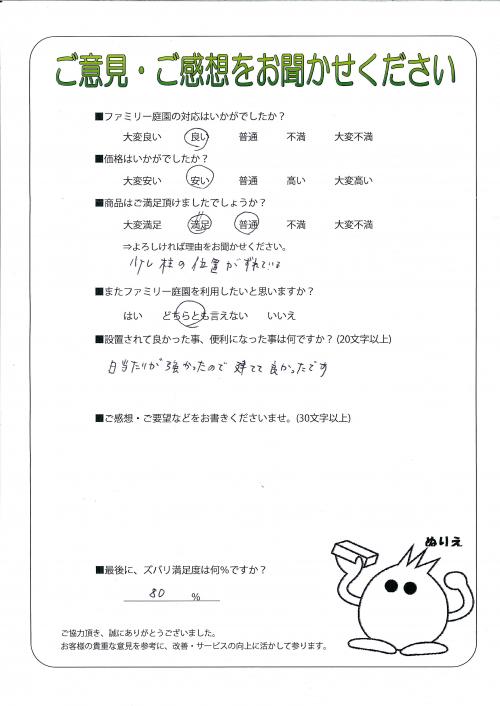 ご意見・ご感想をお聞かせください
■ファミリー庭園の対応はいかがでしたか？
大変良い 良い 普通 不満 大変不満
■価格はいかがでしたか？
大変安い 安い 普通 高い 大変高い
■商品はご満足頂けましたでしょうか？
大変満足 満足 普通 不満 大変不満
⇒よろしければ理由をお聞かせください。
少し柱の位置がずれている
■またファミリー庭園を利用したいと思いますか？
はい どちらとも言えない いいえ
■設置されて良かった事、便利になった事は何ですか？(20文字以上)
日当たりが強かったので建てて良かったです
■ご感想・ご要望などをお書きくださいませ。(30文字以上)
ぬりえ
■最後に、ズバリ満足度は何％ですか？
80 %
ご協力頂き、誠にありがとうございました。
お客様の貴重な意見を参考に、改善・サービスの向上に活かして参ります。